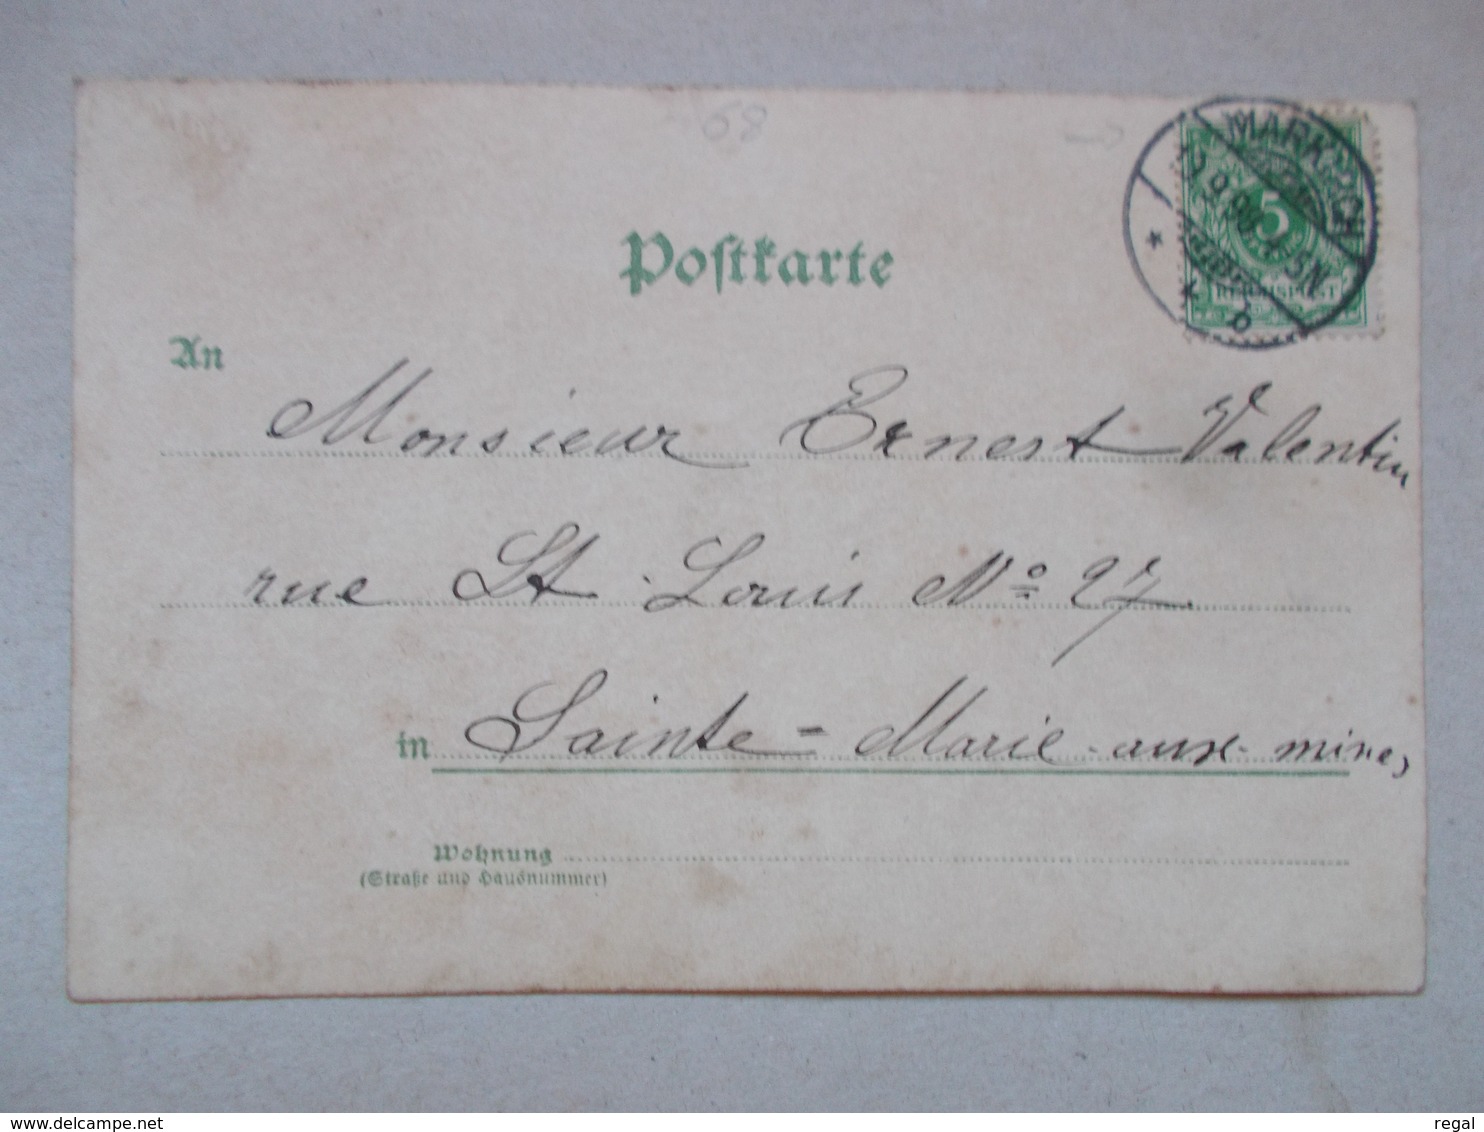 68
MARKIRCH
5
REICHSPOST
b
Postkarte
An
Monsieur Ernest Valentin
rue St. Louis No 27
in Sainte-Marie-aux-mines
Wohnung
(Straße und Hausnummer)
delcampe.net
regal